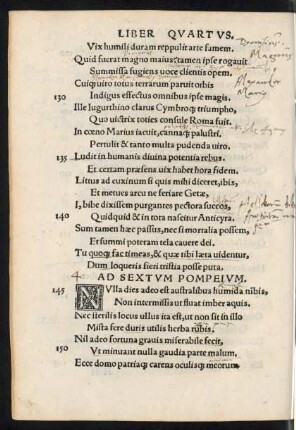 LIBER QVARTVS.
Vix humili duram reppulit arte famem.
Quid fuerat magno maius? tamen ipse rogauit
Summissa fugiens uoce clientis opem.
Cuiq; uiro totus terrarum paruit orbis
Indigus effectus omnibus ipse magis.
Ille Iugurthino clarus Cymbroq; triumpho,
Quo uictrix toties consule Roma fuit.
In cœno Marius iacuit, cannaq; palustri.
Pertulit & tanto multa pudenda uiro.
135 Ludit in humanis diuina potentia rebus.
Et certam præsens uix habet hora fidem.
Littus ad euxinum si quis mihi diceret, ibis,
Et metues arcu ne feriare Getæ,
I, bibe dixissem purgantes pectora succos,
140 Quidquid & in tota nascitur Anticyra.
Sum tamen hæc passus, nec si mortalia possem,
Et summi poteram tela cauere dei.
Tu quoq; fac timeas, & quæ tibi læta uidentur,
Dum loqueris fieri tristia posse puta.
AD SEXTVM POMPEIVM.
145 NVlla dies adeo est australibus humida nibis,
Non intermissis ut fluat imber aquis.
Nec sterilis locus ullus ita est, ut non sit in illo
Mista fere duris utilis herba rubis.
Nil adeo fortuna grauis miserabile fecit,
150 Vt minuant nulla gaudia parte malum,
Ecce domo patriaq; carens oculisq; meorum